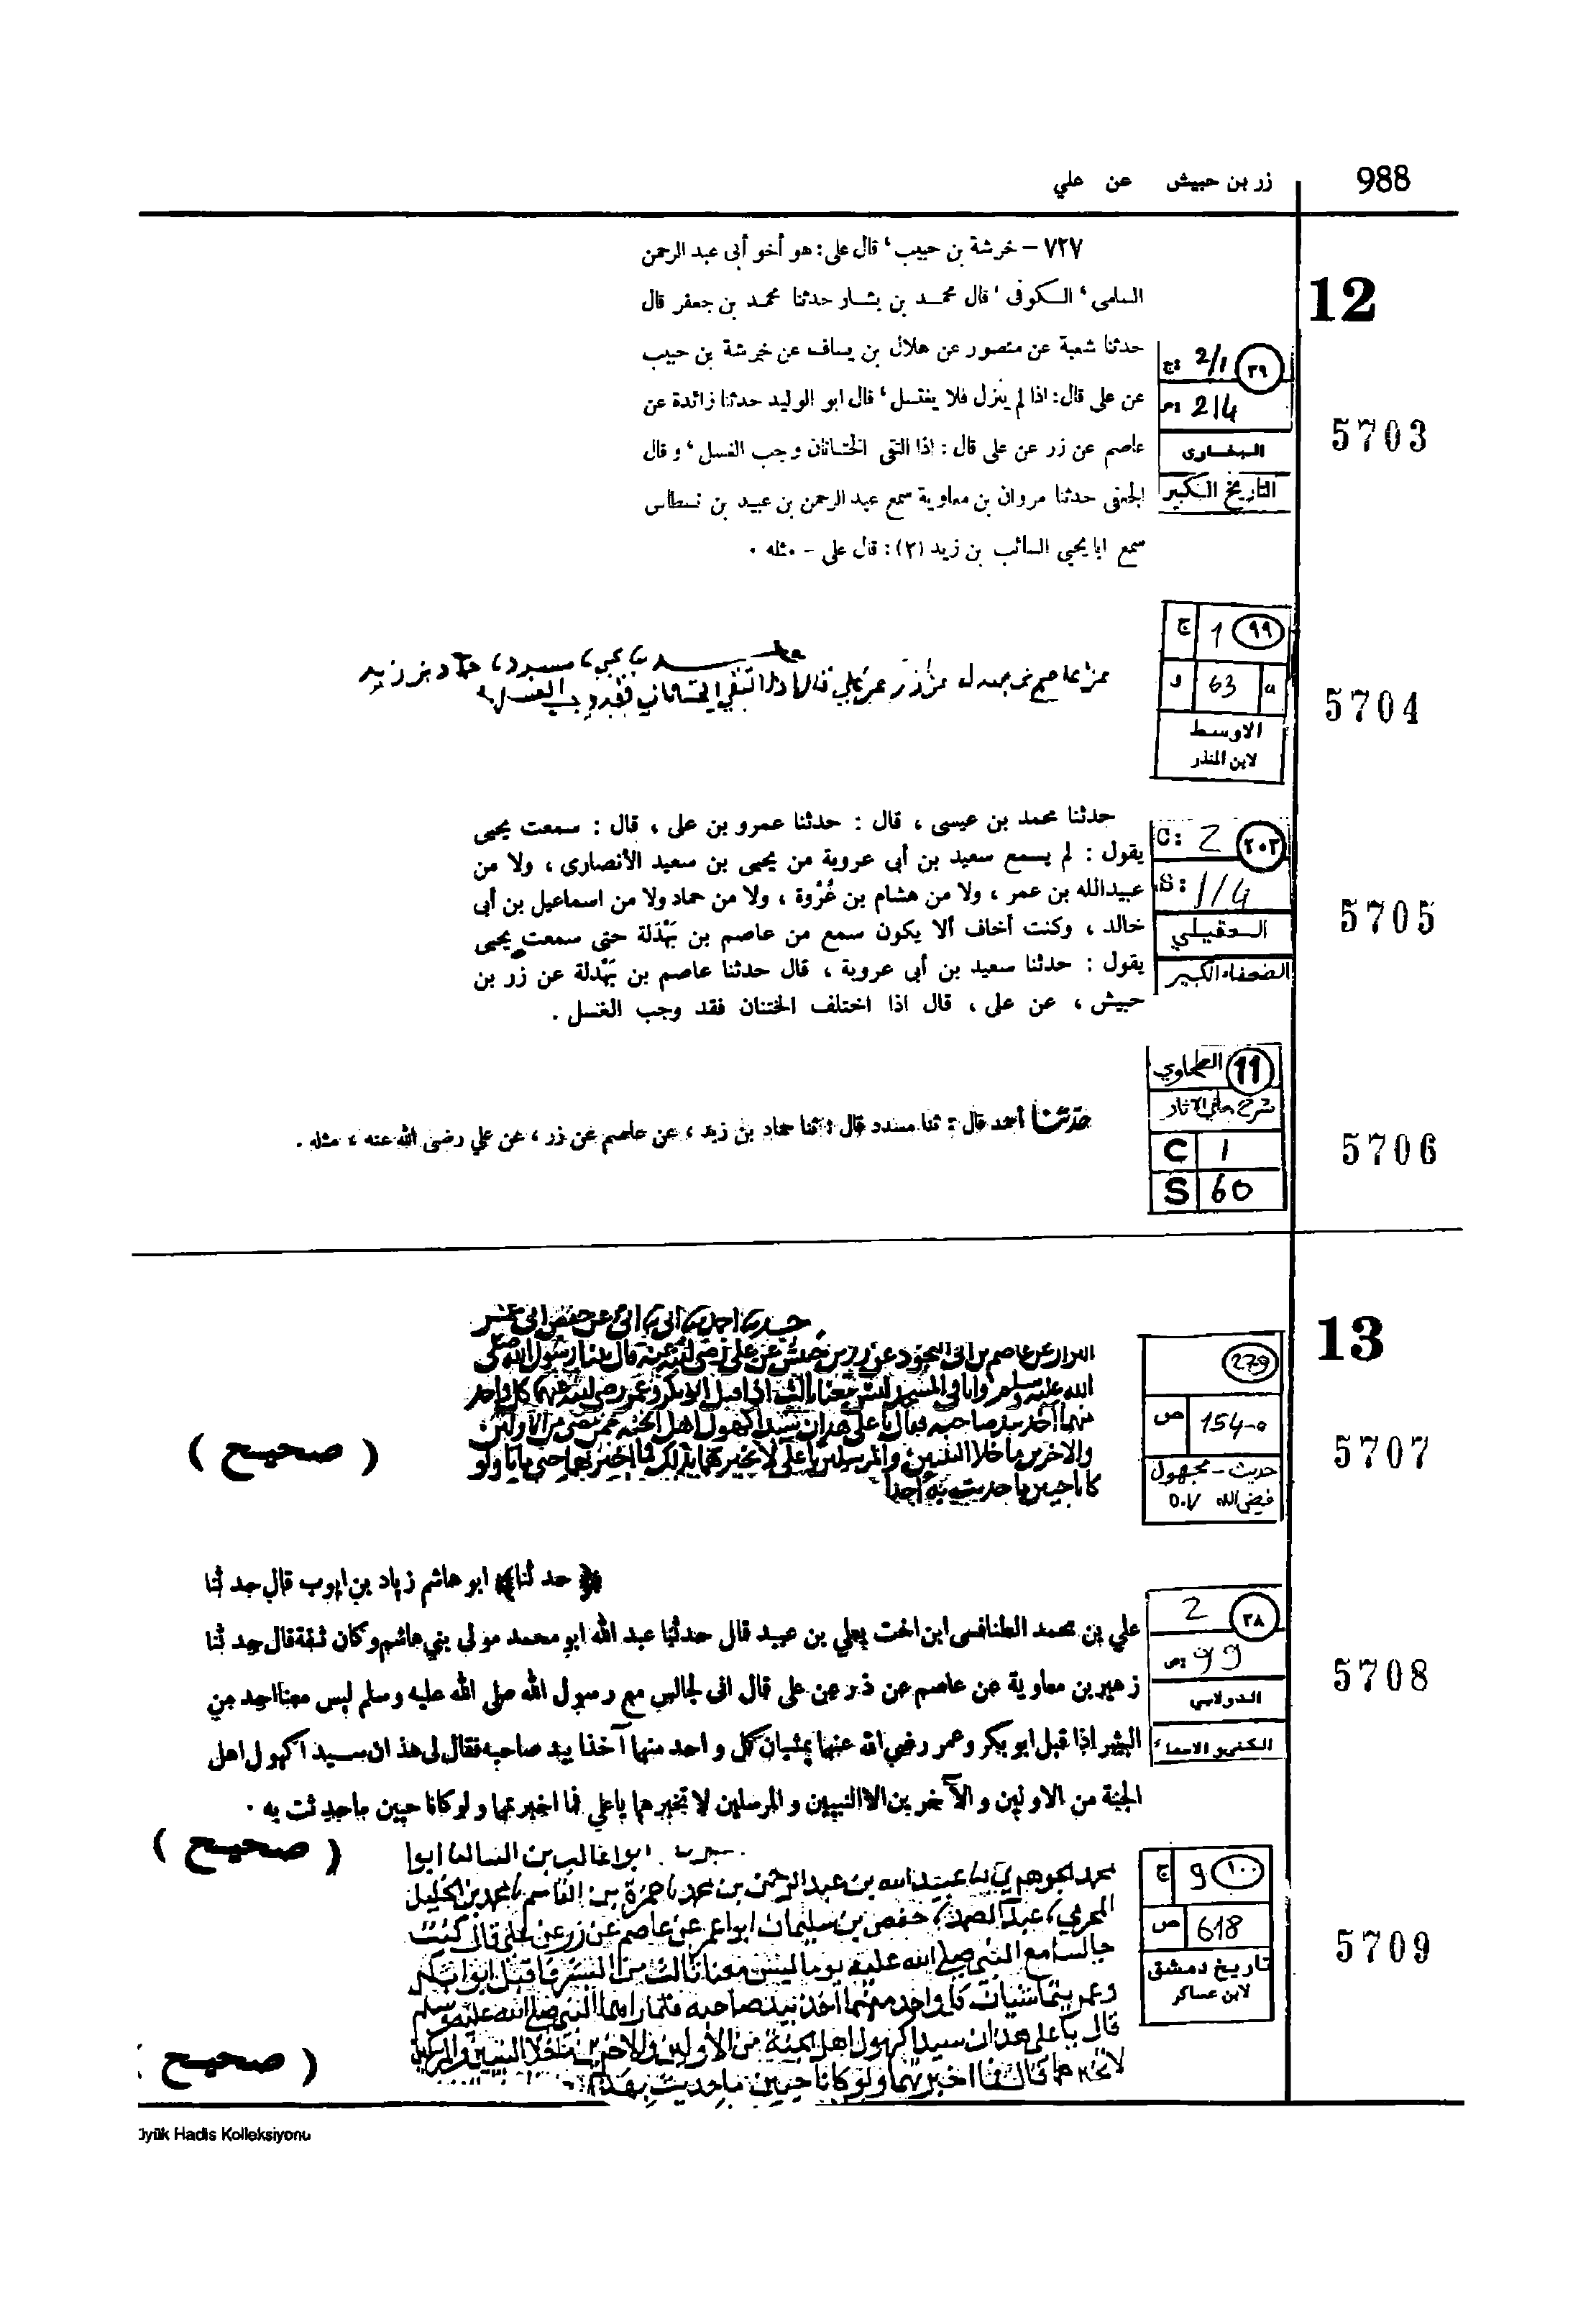 988
زر بن حبيش عن علي
12
٧٢٧ – خرشة بن حبيب، قال على: هو أخو أبى عبد الرحمن
السلمى، الكوفى، قال محمد بن بشار حدثنا محمد بن جعفر قال
حدثنا شعبة عن منصور عن هلال بن يساف عن خرشة بن حبيب
عن على قال: اذا لم ينزل فلا يغتسل، قال ابو الوليد حدثنا زائدة عن
عاصم عن زر عن على قال: اذا التقى الختانان وجب الغسل، و قال
الجعفى حدثنا مروان بن معاوية سمع عبد الرحمن بن عبيد بن نسطاس
سمع ابا يحيى السائب بن زيد (٢): قال على – مثله ٠
ج: 2/1 ٣٩
ص: 214
البخارى
التاريخ الكبير
5703
يحيى، مسدد، حماد بن زيد
عن عاصم عن زر عن علي قال اذا التقى الختانان فقد وجب الغسل
ج 1 ٩٩
و 63 a
الاوسط
لابن المنذر
5704
حدثنا محمد بن عيسى ، قال : حدثنا عمرو بن على ، قال : سمعت يحيى
يقول : لم يسمع سعيد بن أبى عروبة من يحيى بن سعيد الأنصارى ، ولا من
عبيدالله بن عمر ، ولا من هشام بن عُرْوة ، ولا من حماد ولا من اسماعيل بن أبى
خالد ، وكنت أخاف ألا يكون سمع من عاصم بن بَهْدَلة حتى سمعت يحيى
يقول : حدثنا سعيد بن أبى عروبة ، قال حدثنا عاصم بن بَهْدلة عن زر بن
حبيش ، عن على ، قال اذا اختلف الختنان فقد وجب الغسل .
C: 2 ٢٠٣
S: 114
العقيلي
الضعفاء الكبير
5705
حدّثنا أحمد قال : ثنا مسدد قال : ثنا حماد بن زيد ، عن عاصم عن زر ، عن علي رضى الله عنه ، مثله .
الطحاوي 11
شرح معاني الآثار
C 1
S 60
5706
13
حدثنا احمد
عاصم بن ابى النجود عن زر بن حبيش عن على رضى الله عنه قال بينا رسول الله صلى
الله عليه وسلم وانا فى المسجد ليس معنا ثالث اذ اقبل ابو بكر وعمر رضى الله عنهما كل واحد
منهما آخذ بيد صاحبه فقال يا على هذان سيدا كهول اهل الجنة ممن مضى من الاولين
والاخرين ما خلا النبيين والمرسلين يا على لا تخبرهما بذلك فما اخبرتهما حتى ماتا ولو
كانا حيين ما حدثت به أحدا
( صحيح )
279
ص 154-٥
حديث - مجهول
فيض الله ٥٠٧
5707
﴿ حدثنا ﴾ ابو هاشم زياد بن ايوب قال حدثنا
علي بن محمد الطنافسى ابن اخت يعلي بن عبيد قال حدثنا عبد الله ابو محمد مولى بني هاشم وكان ثقة قال حدثنا
زهير بن معاوية عن عاصم عن ذر عن على قال انى لجالس مع رسول الله صلى الله عليه وسلم ليس معنا احد من
البشر اذا قبل ابو بكر وعمر رضي الله عنهما يمشيان كل واحد منهما آخذا بيد صاحبه فقال لى هذان سيدا كهول اهل
الجنة من الاولين والآخرين الا النبيين والمرسلين لا تخبرهما يا علي فما اخبرتهما ولو كانا حيين ما حدثت به ٠
2 ٣٨
ص: 99
الدولابي
الكنى والاسماء
5708
( صحيح )
ابوا غالب بن البنا انا ابوا
محمد الجوهري انا عبيد الله بن عبد الرحمن بن محمد نا حمزة بن القاسم نا محمد بن الخليل
المخرمي نا عبد الصمد نا حفص بن سليمان ابوا عمر عن عاصم عن زر عن علي قال كنت
جالسا مع النبي صلى الله عليه يوما ليس معنا ثالث من البشر فاقبل ابوا بكر
وعمر يتماشيان كل واحد منهما آخذ بيد صاحبه فلما رآهما النبي صلى الله عليه وسلم
قال يا علي هذان سيدا كهول اهل الجنة من الأولين والاخرين ما خلا النبيين والمرسلين
لا تخبرهما قال فما اخبرتهما ولو كانا حيين ما حدثت بهذا
ج 9 ١٠٠
ص 618
تاريخ دمشق
لابن عساكر
5709
( صحيح )
üyük Hadis Kolleksiyonu